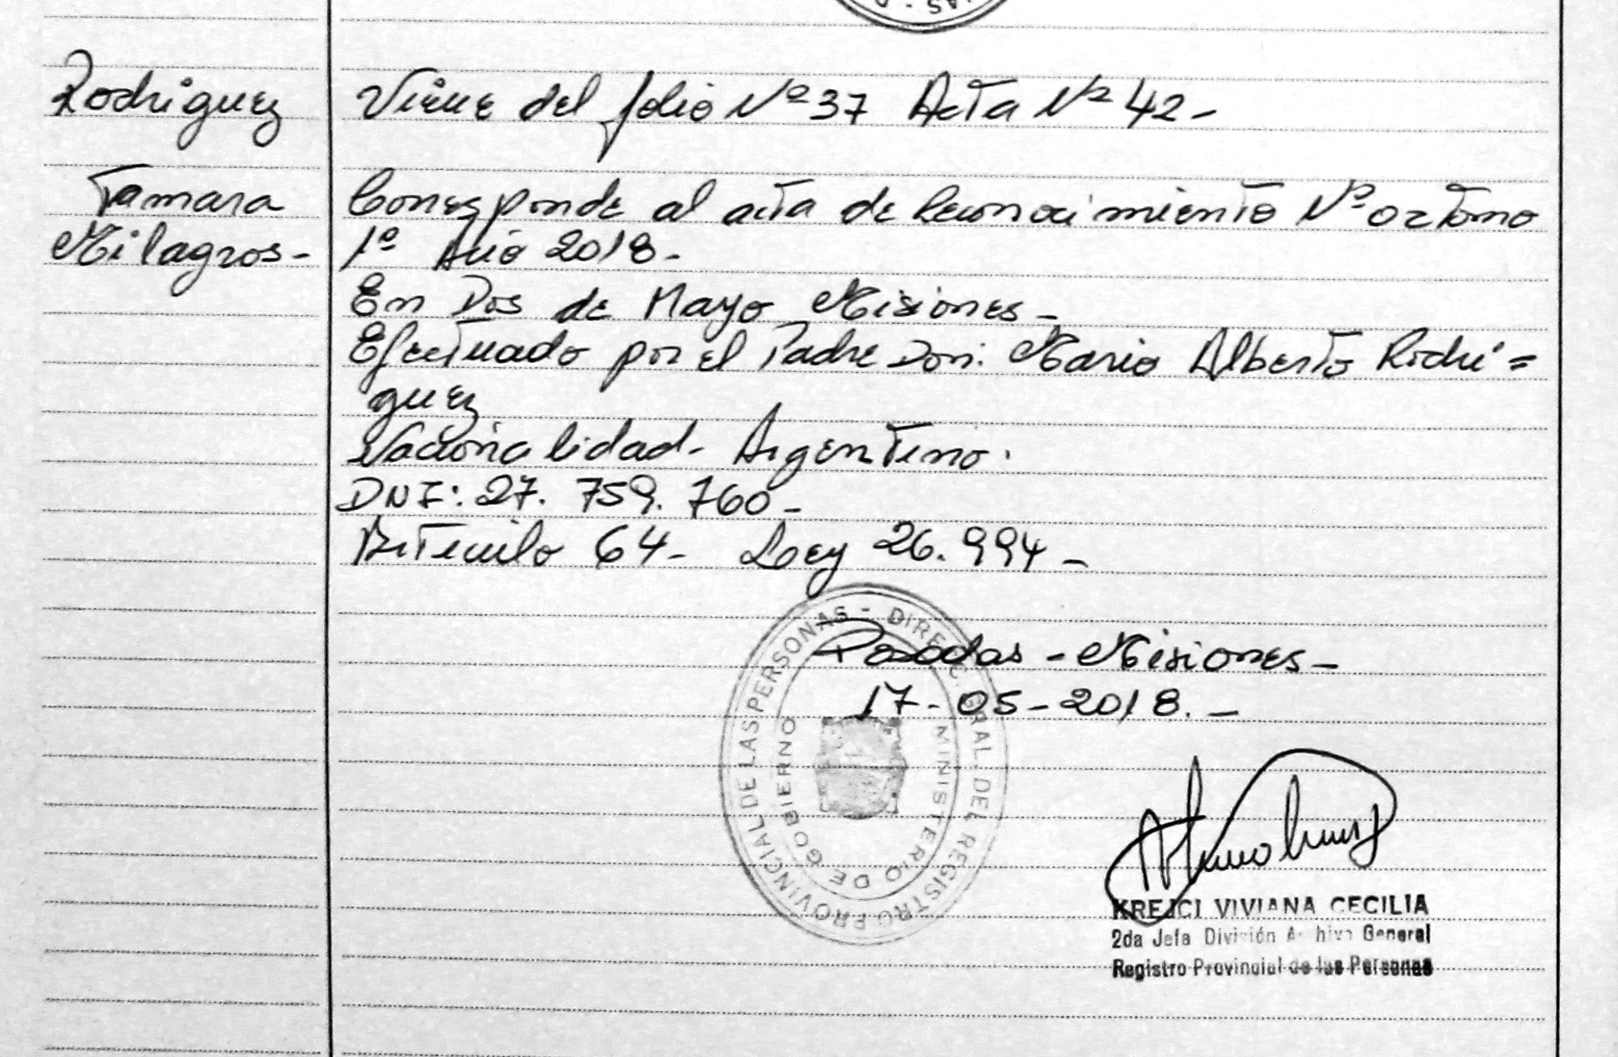 Rodriguez
Tamara
Milagros-
Viene del folio Nº 37 Acta Nº 42-
Corresponde al acta de Reconocimiento Nº 02 Tomo
1º Año 2018.-
En Dos de Mayo Misiones-
Efectuado por el Padre Don: Mario Alberto Rodri=
guez
Nacionalidad- Argentino.
DNI: 27.759.760-
Articulo 64- Ley 26.994-
Posadas - Misiones-
17-05-2018.-
DIRECC. GRAL. DEL REGISTRO PROVINCIAL DE LAS PERSONAS -
MINISTERIO DE GOBIERNO
KREJCI VIVIANA CECILIA
2da Jefa División Archivo General
Registro Provincial de las Personas